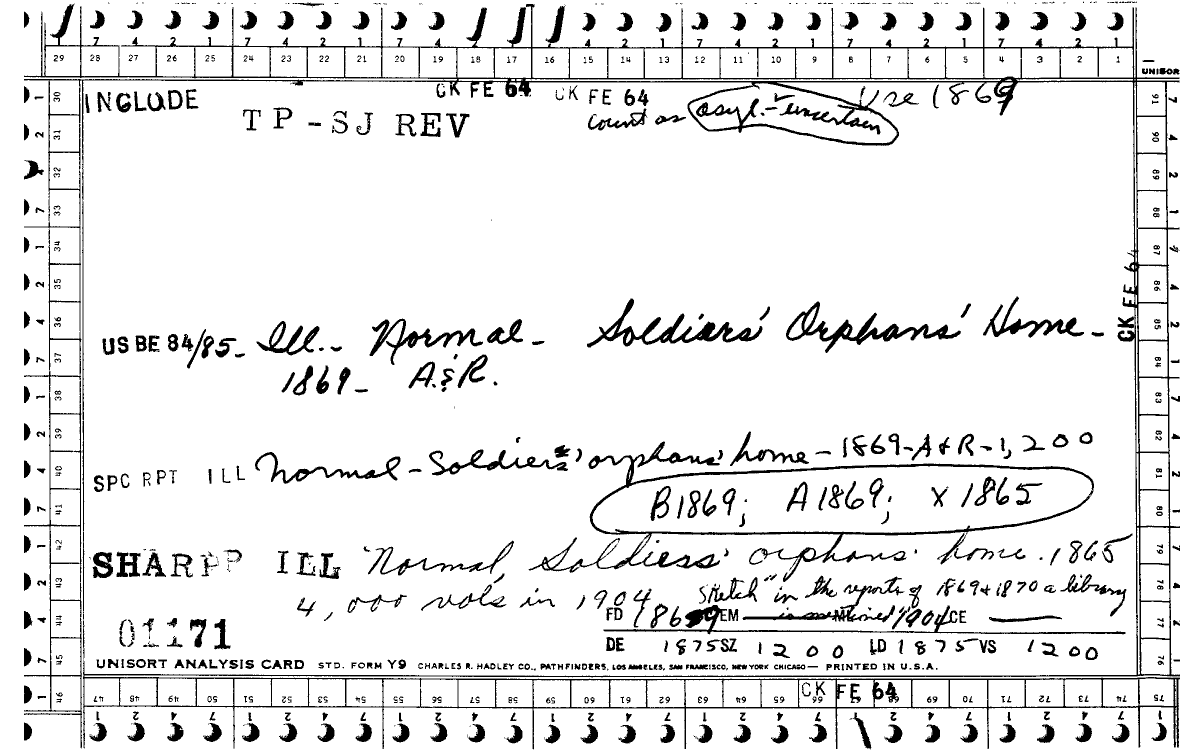 7 4 2 1 7 4 2 1 7 4 2 1 7 4 2 1 7 4 2 1 7 4 2 1 7 4 2 1
29 28 27 26 25 24 23 22 21 20 19 18 17 16 15 14 13 12 11 10 9 8 7 6 5 4 3 2 1
UNISOR
INCLUDE CK FE 64 CK FE 64 Use 1869
TP-SJ REV count as asyl.- uncertain
CK FE 64
US BE 84/85- Ill.- Normal- Soldiers' Orphans' Home-
1869- A.&R.
SPC RPT ILL Normal-Soldiers' orphans' home-1869-A&R-1,200
B1869; A1869; X 1865
SHARPP ILL Normal, Soldiers' orphans' home. 1865
4,000 vols in 1904 Sketch" in the reports of 1869 & 1870 a library
is mentioned 1904
FD 1869 EM CE
01171
DE 1875 SZ 1200 LD 1875 VS 1200
UNISORT ANALYSIS CARD STD. FORM Y9 CHARLES R. HADLEY CO., PATHFINDERS, LOS ANGELES, SAN FRANCISCO, NEW YORK CHICAGO — PRINTED IN U.S.A.
CK FE 64
46 47 48 49 50 51 52 53 54 55 56 57 58 59 60 61 62 63 64 65 66 67 68 69 70 71 72 73 74 75